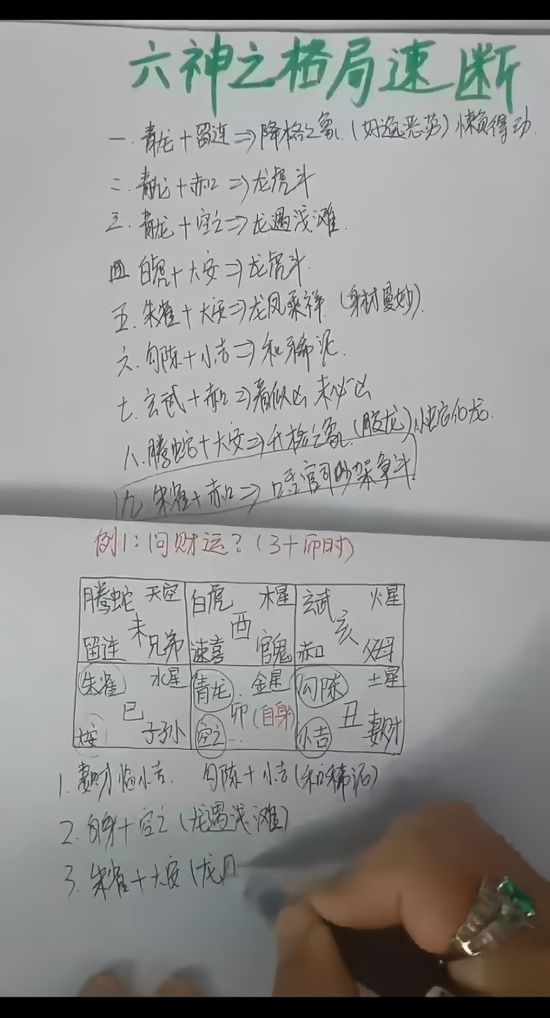 六神之格局速断
一.青龙+留连⇒降格之象.(好逸恶劳)懒觉得动.
二.青龙+赤口⇒龙虎斗
三.青龙+空亡⇒龙遇浅滩.
四 白虎+大安⇒龙虎斗.
五.朱雀+大安⇒龙凤乘祥.(身材曼妙).
六.勾陈+小吉⇒和稀泥.
七.玄武+赤口⇒看似凶 未必凶
八.腾蛇+大安⇒升格之象.(腾龙)化龙.
九 朱雀+赤口⇒口舌官司吵架争斗
例1:问财运?(3+卯时)
腾蛇 天空 白虎 木星 玄武 火星
未 酉 亥
留连 兄弟 速喜 官鬼 赤口 父母
朱雀 水星 青龙. 金星 勾陈 土星
巳 卯(自身) 丑
大安 子孙 空亡 小吉 妻财
1.妻财临小吉. 勾陈+小吉(和稀泥)
2.自身+空亡(龙遇浅滩)
3.朱雀+大安(龙